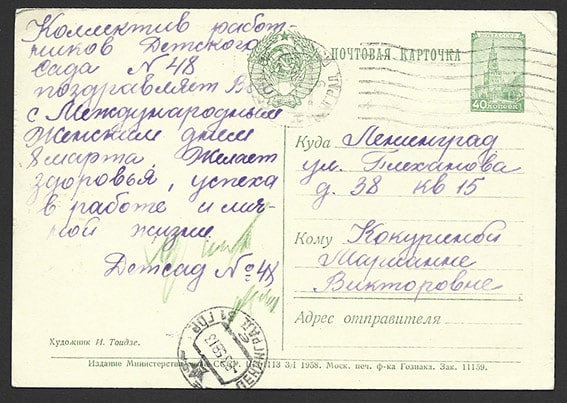 Коллектив работ-
ников Детского
сада № 48
поздравляет Вас
с Международным
Женским днем
8 марта. Желает
здоровья, успеха
в работе и лич-
ной жизни.
Детсад № 48
Художник И. Тоидзе.
ПОЧТОВАЯ КАРТОЧКА
ПОЧТА СССР
40 КОПЕЕК
Куда Ленинград
ул. Плеханова
д. 38 кв 15
Кому Кокуриной
Марианне
Викторовне
Адрес отправителя
ЛЕНИНГРАД
Издание Министерства СССР. 3/I 1958. Моск. печ. ф-ка Гознака. Зак. 11159.